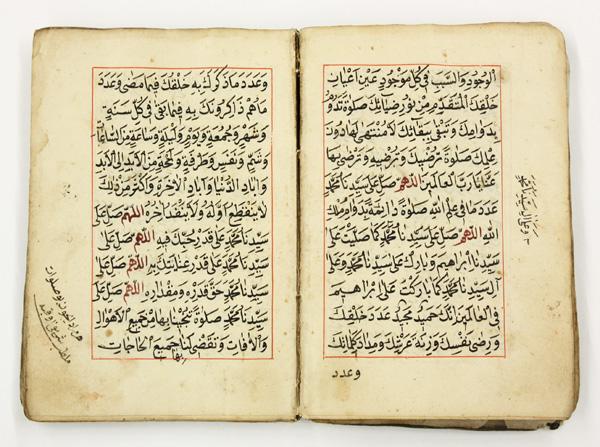 الوجود والسبب في كل موجود عين اعيان
خلقك المتقدم من نور ضيائك صلوة تدوم
بدوامك وتبقى ببقائك لا منتهى لها دون
علمك صلوة ترضيك وترضيه وترضى بها
عنا يا رب العالمين اللهم صل على سيدنا محمد
عدد ما في علم الله صلوة دائمة بدوام ملك
الله اللهم صل على سيدنا محمد كما صليت على
سيدنا ابراهيم وبارك على سيدنا محمد وعلى
آل سيدنا محمد كما باركت على ابراهيم
في العالمين انك حميد مجيد عدد خلقك
ورضى نفسك وزنة عرشك ومداد كلماتك
وعدد
وعلى آل سيدنا محمد
وعدد ما ذكرك به خلقك فيما مضى وعدد
ما هم ذاكرونك به فيما بقي في كل سنة
وشهر وجمعة ويوم وليلة وساعة من الساعات
وشم ونفس وطرفة ولمحة من الابد الى الابد
وآباد الدنيا وآباد الآخرة واكثر من ذلك
لا ينقطع اوله ولا ينفد آخره اللهم صل على
سيدنا محمد على قدر حبك فيه اللهم صل على
سيدنا محمد على قدر عنايتك به اللهم صل على
سيدنا محمد حق قدره ومقداره اللهم صل على
سيدنا محمد صلوة تنجينا بها من جميع الاهوال
والآفات وتقضي لنا جميع الحاجات
بها